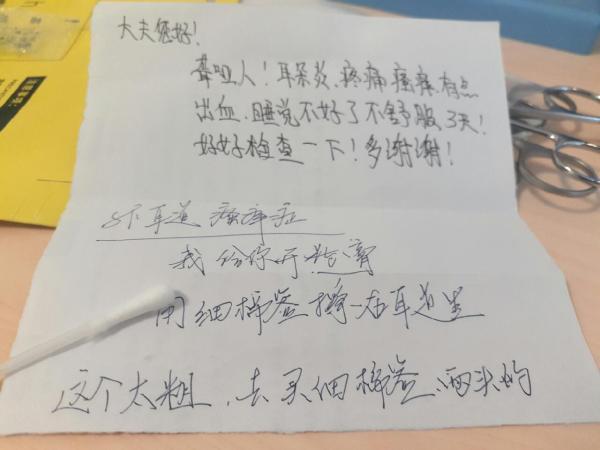 大夫您好！
聋哑人！耳朵炎、疼痛瘙痒、有点
出血、睡说不好了不舒服3天！
好好检查一下！多谢谢！
外耳道瘙痒症
我给你开药膏
用细棉签擦在耳道里
这个太粗，去买细棉签、两头的